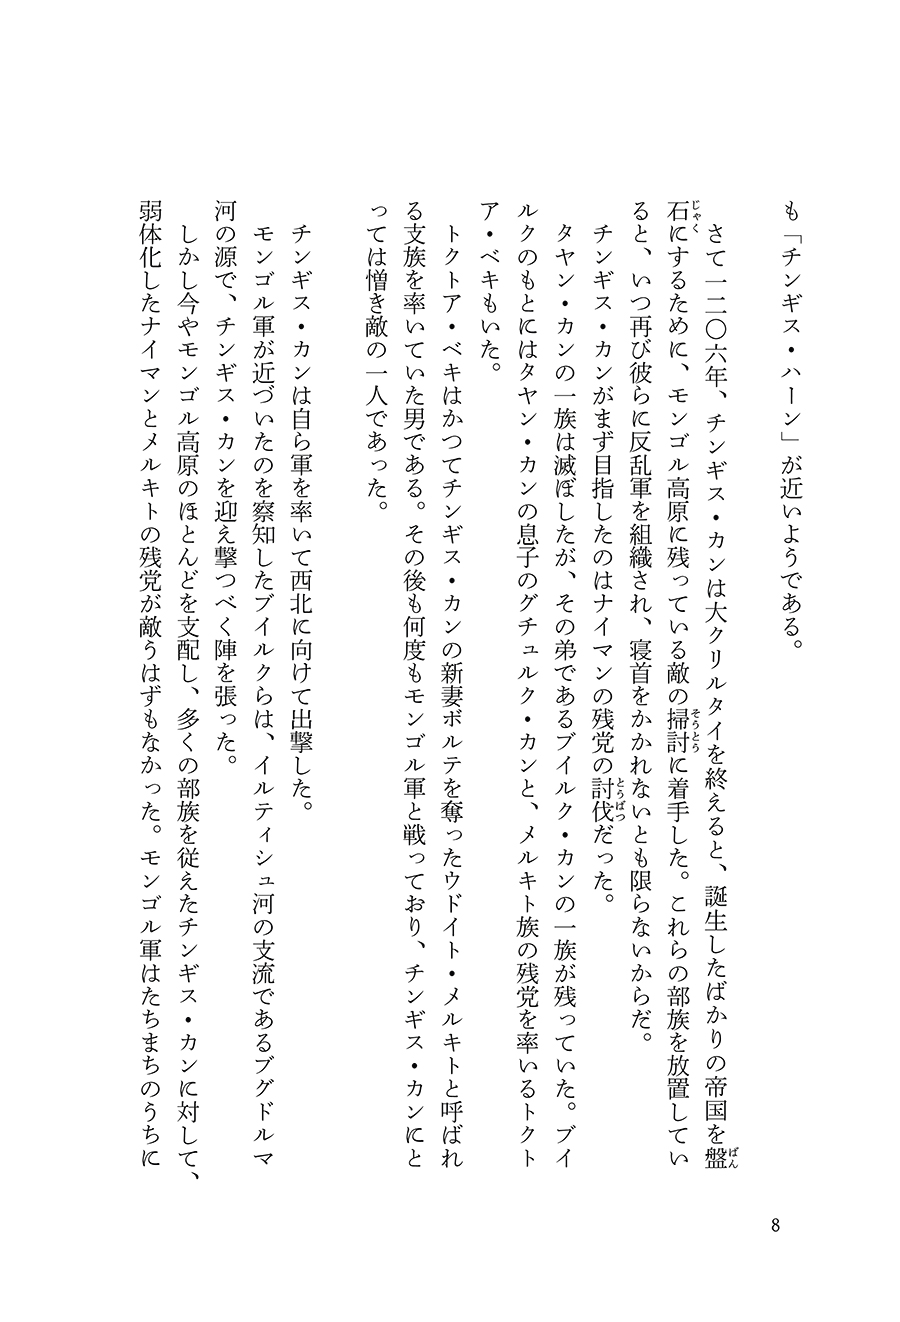 も「チンギス・ハーン」が近いようである。
さて一二〇六年、チンギス・カンは大クリルタイを終えると、誕生したばかりの帝国を盤
石にするために、モンゴル高原に残っている敵の掃討に着手した。これらの部族を放置してい
ると、いつ再び彼らに反乱軍を組織され、寝首をかかれないとも限らないからだ。
チンギス・カンがまず目指したのはナイマンの残党の討伐だった。
タヤン・カンの一族は滅ぼしたが、その弟であるブイルク・カンの一族が残っていた。ブイ
ルクのもとにはタヤン・カンの息子のグチュルク・カンと、メルキト族の残党を率いるトクト
ア・ベキもいた。
トクトア・ベキはかつてチンギス・カンの新妻ボルテを奪ったウドイト・メルキトと呼ばれ
る支族を率いていた男である。その後も何度もモンゴル軍と戦っており、チンギス・カンにと
っては憎き敵の一人であった。
チンギス・カンは自ら軍を率いて西北に向けて出撃した。
モンゴル軍が近づいたのを察知したブイルクらは、イルティシュ河の支流であるブグドルマ
河の源で、チンギス・カンを迎え撃つべく陣を張った。
しかし今やモンゴル高原のほとんどを支配し、多くの部族を従えたチンギス・カンに対して、
弱体化したナイマンとメルキトの残党が敵うはずもなかった。モンゴル軍はたちまちのうちに
8